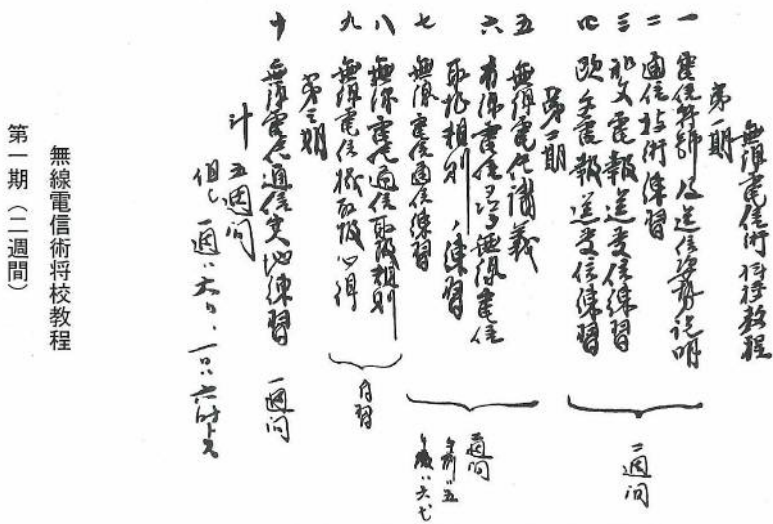 無線電信術将校教程
第一期
一 電信符號及送信姿勢説明
二 通信技術練習
三 和文電報送受信練習
四 欧文電報送受信練習
二週間
第二期
五 無線電信講義
六 有線電信及無線電信
取扱規則ノ練習
七 無線電信通信練習
二週間
午前八五
八 無線電信通信取扱規則
九 無線電信機取扱心得
自習
第三期
十 無線電信通信実地練習 一週間
計 五週間
但シ一週ハ六日、一日ハ六時
無線電信術将校教程
第一期（二週間）